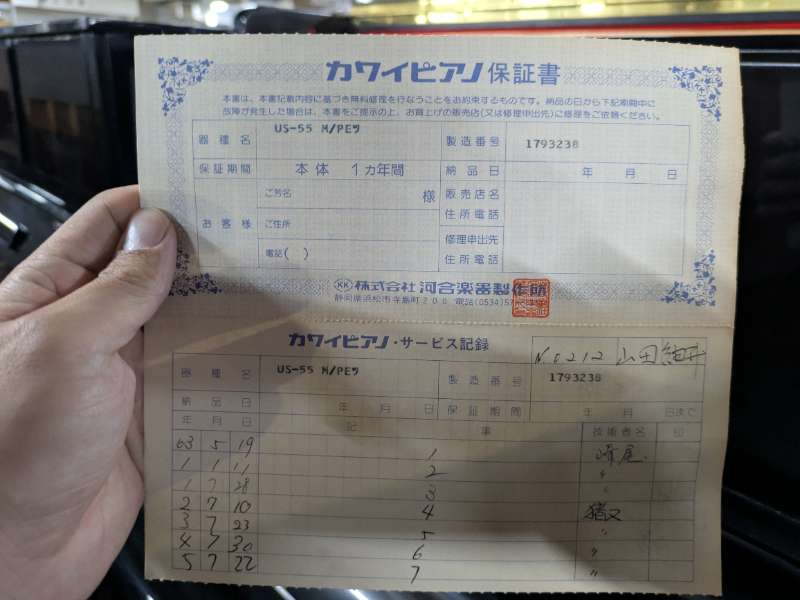 カワイピアノ 保証書
本書は、本書記載内容に基づき無料修理を行なうことをお約束するものです。納品の日から下記期間中に
故障が発生した場合は、本書をご提示の上、お買上げの販売店(又は修理申出先)に修理をご依頼ください。
器種名 US-55 M/PEワ 製造番号 1793238
保証期間 本体 1ヵ年間 納品日 年 月 日
お客様 ご芳名 様 販売店名
住所電話
ご住所
修理申出先
電話( ) 住所電話
株式会社 河合楽器製作所
静岡県浜松市寺島町200 電話(0534)57
カワイピアノ・サービス記録
No212 山田 細井
器種名 US-55 M/PEワ 製造番号 1793238
納品日 年 月 日 保証期間 年 月 日まで
年 月 日 記 事 技術者名 印
63 5 19 1
1 1 11 2 〃
1 7 28 3 〃
2 7 10 4 猪又
3 7 23 5 〃
4 7 30 6 〃
5 7 22 7 〃